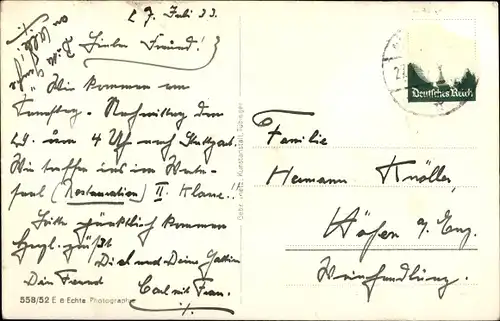 27. Juli 33.
Lieber Freund!
Wir kommen am
Samstag-Nachmittag den
29. um 4 Uhr nach Stuttgart.
Wir treffen uns im Warte-
saal (Restauration) II. Klasse!!
Bitte pünktlich kommen
Herzl. grüßt
Dich und Deine Gattin
Dein Freund
Carl mit Frau.
558/52 E e Echte Photographie
Gebr. Metz, Kunstanstalt, Tübingen
Deutsches Reich
Familie
Hermann Knöller,
Höfen a/Enz.
Weinhandlung.